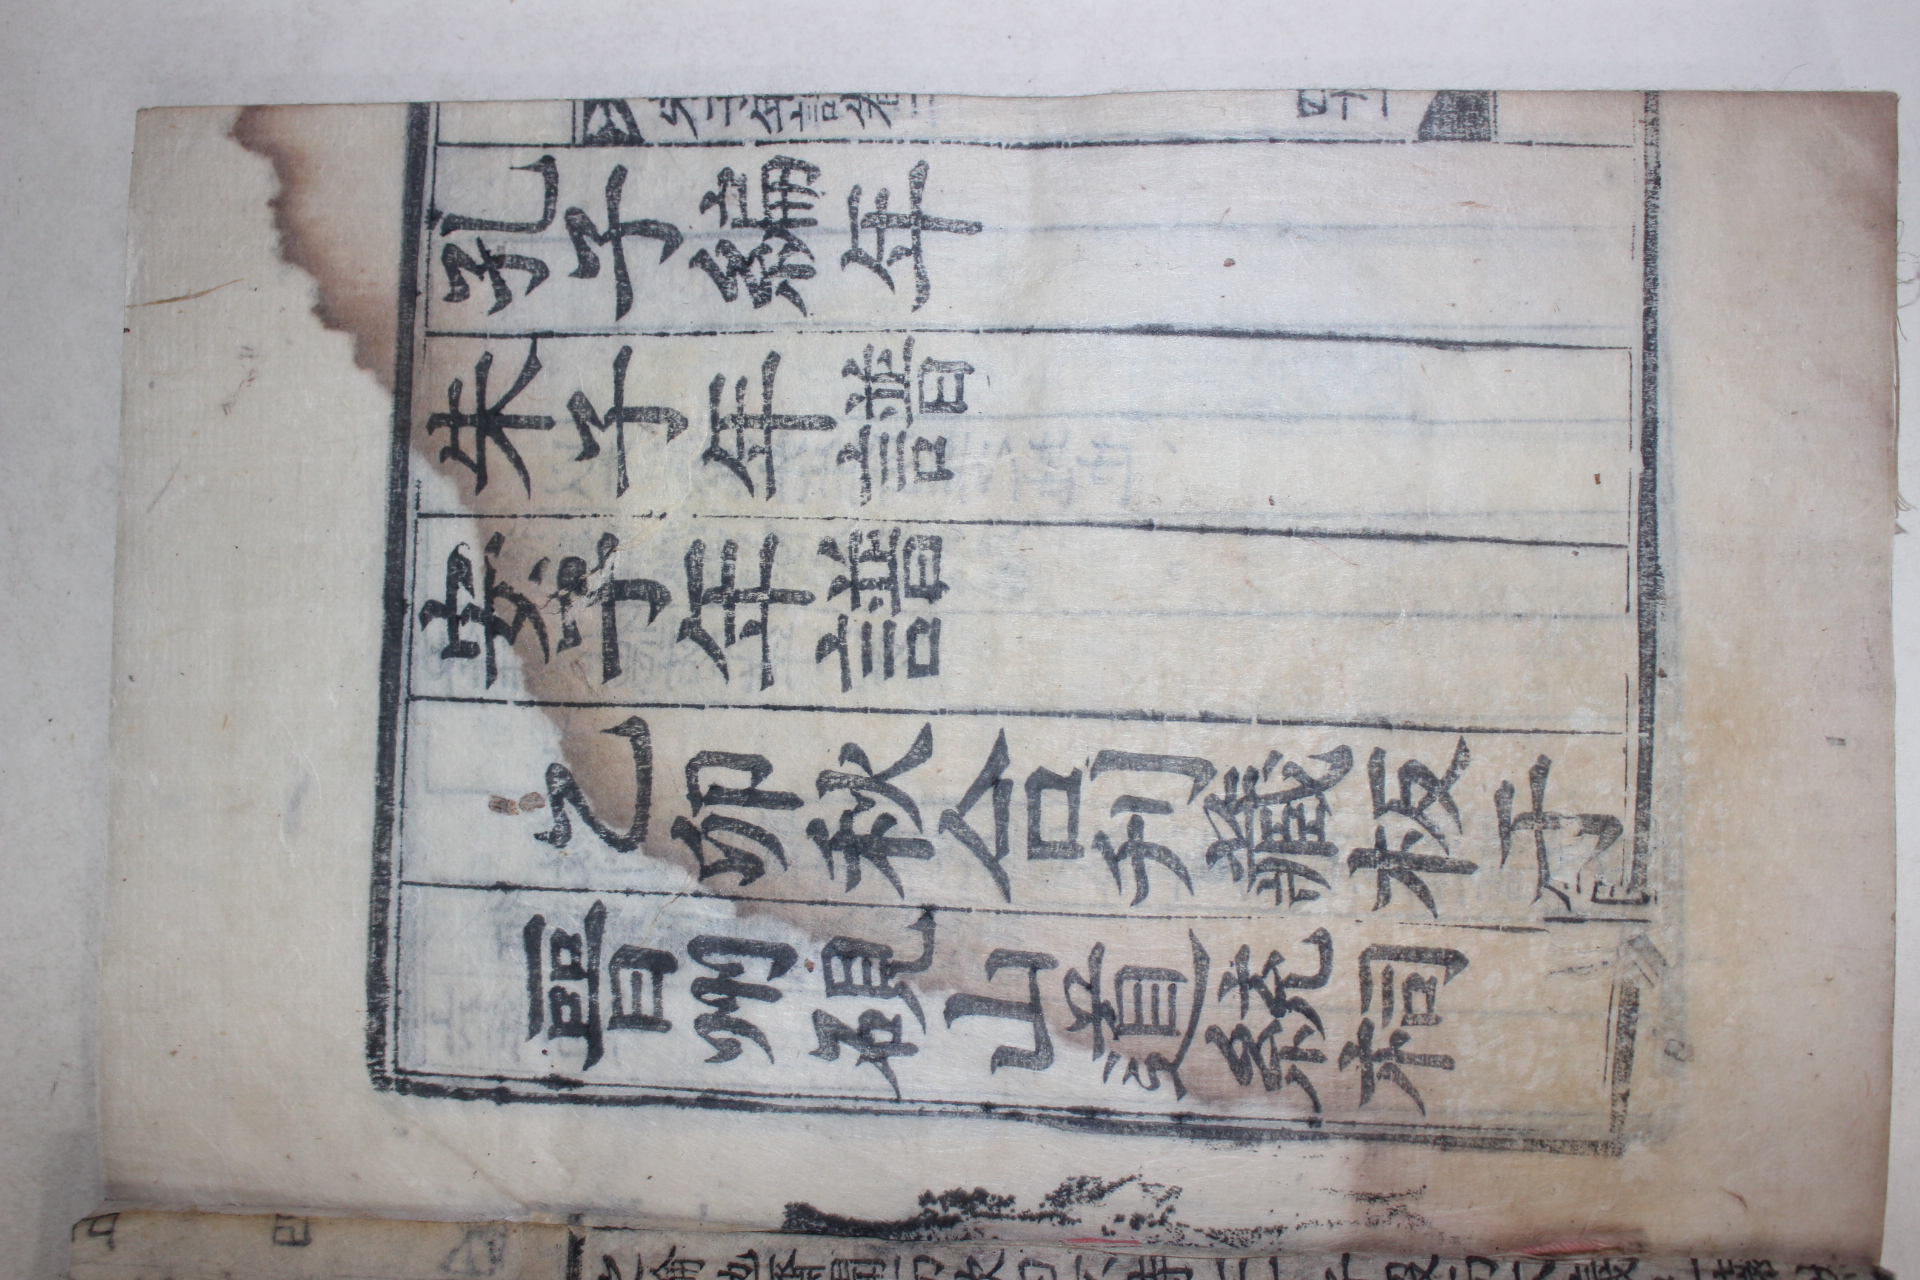 孔子編年
朱子年譜
安子年譜
乙卯秋合刋藏板于
晉州硯山道統祠
四十一